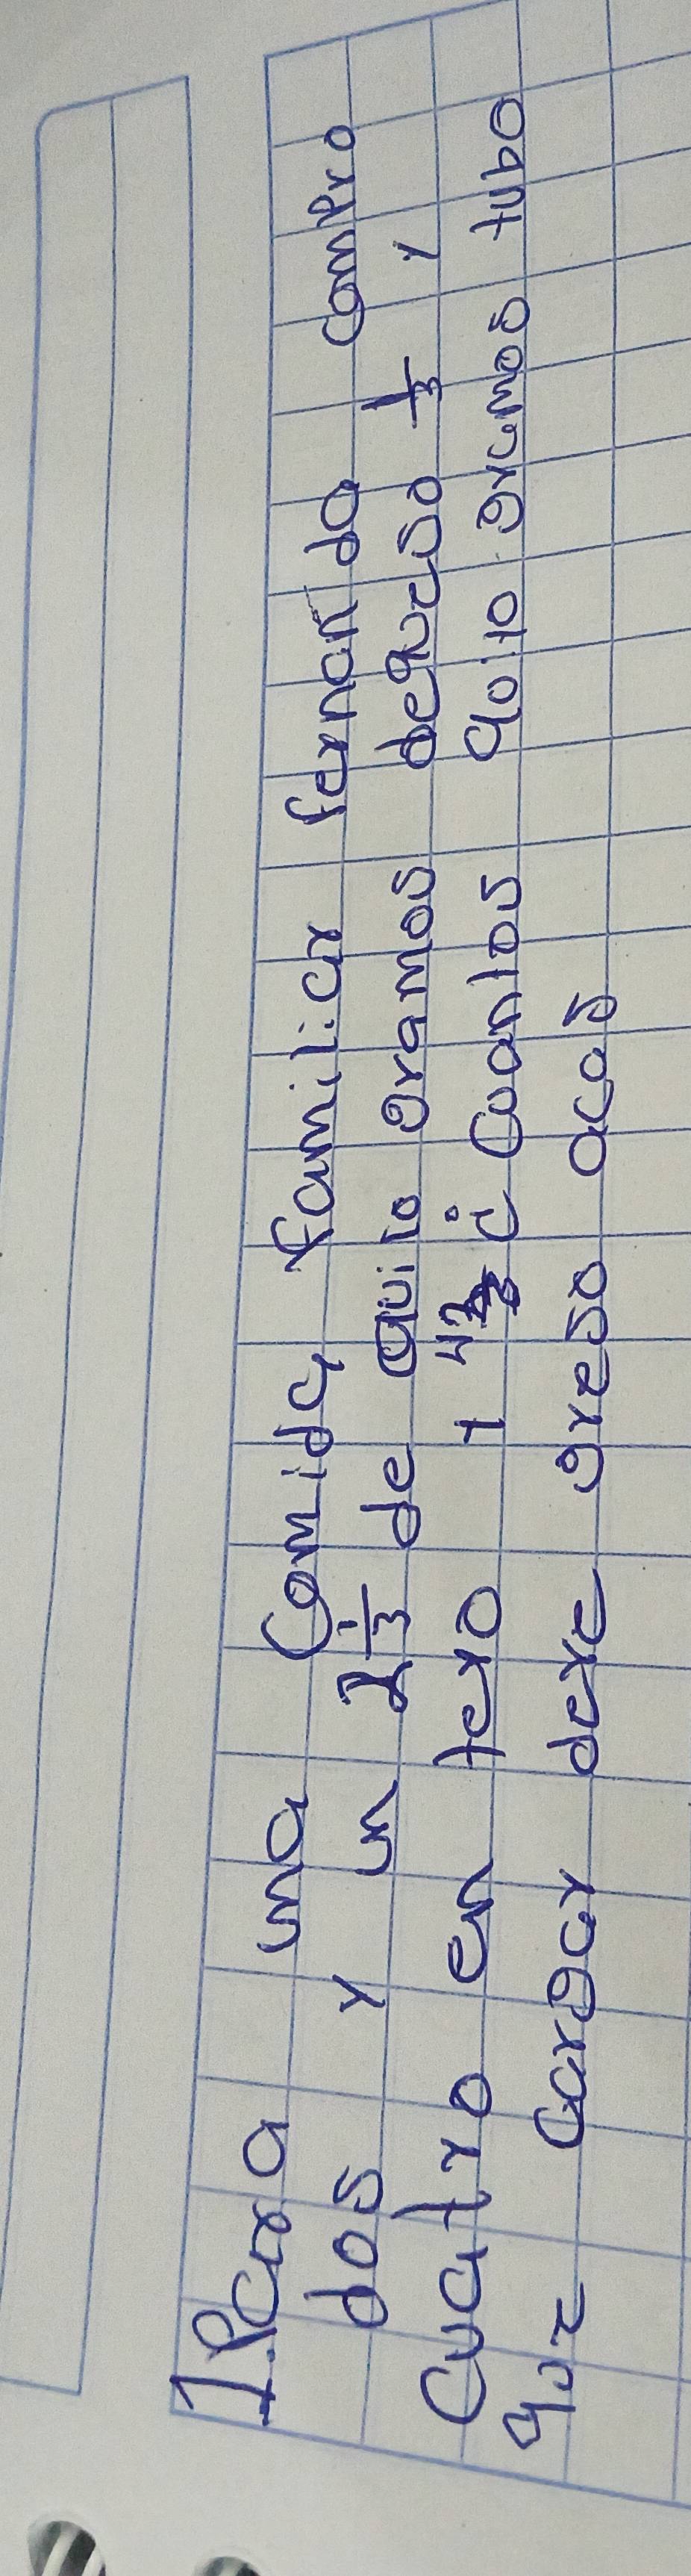 1. Para una Comida familiar fernando compro
dos y un 2 1/3 de quilo gramos dequeso 1/3 y
Cuatro en tero y 4 ¿ Cuantos quilo gramos tubo
que Cargar dere greso acas